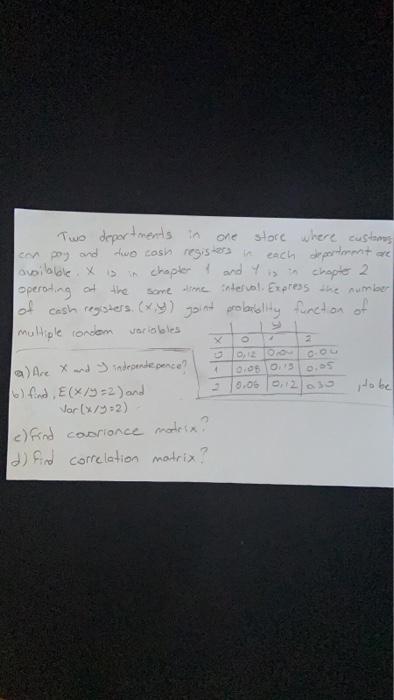 Two departments in one store where customs
can pay and two cash registers in each department are
available. X is in chapter 1 and Y is in chapte 2
operating at the same time interval. Express the number
of cash registers. (x,y) joint probability function of
multiple random variables
y
x 0 1 2
0 0,12 0.04
1 0.08 0.05
2 0.06 0,12 0.30 , to be
a) Are x and y independepence?
b) find, E(x/y=2) and
Var(x/y=2)
c) find covoriance matrix?
d) find correlation matrix?